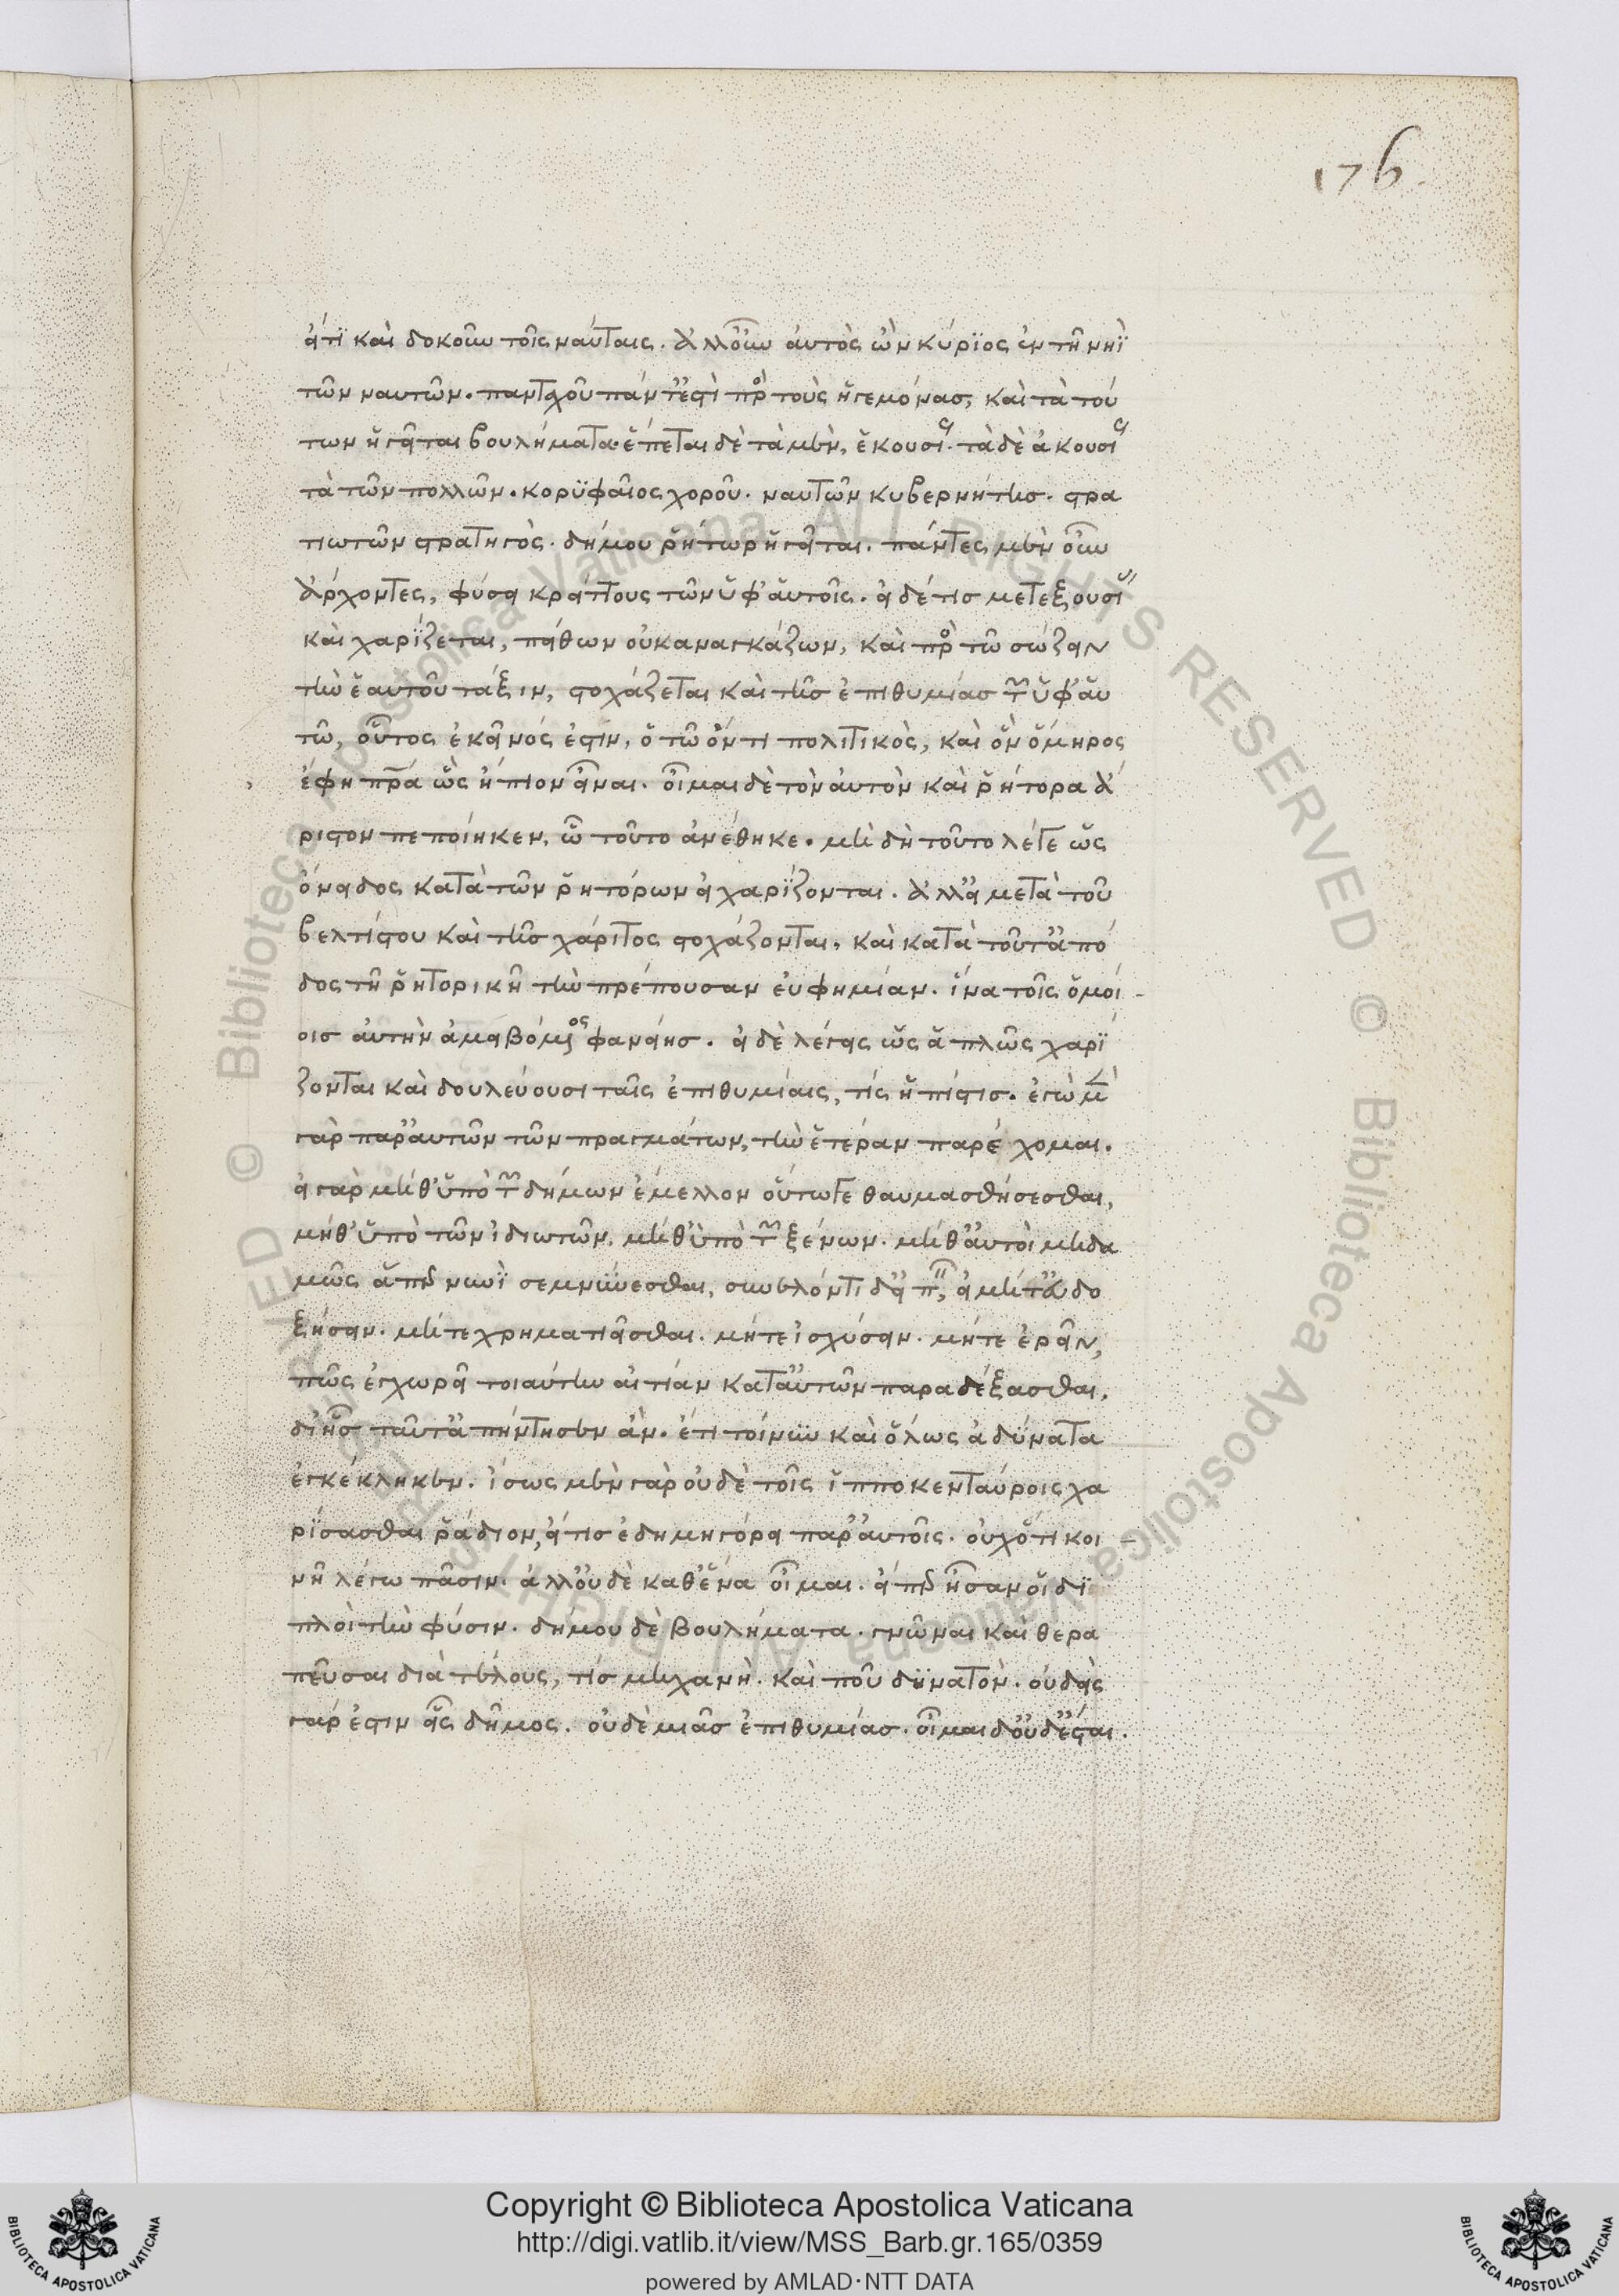 176.
εἴ τι καὶ δοκοῦν τοῖς ναύταις. ἀλλ' οὖν αὐτὸς ὢν κύριος ἐν τῇ νηῒ
τῶν ναυτῶν. πανταχοῦ πάντ' ἐστὶ πρὸς τοὺς ἡγεμόνας, καὶ τὰ τού
των ἡγεῖται βουλήματα· ἕπεται δὲ τὰ μὲν, ἑκουσίως· τὰ δὲ ἀκουσίως
τὰ τῶν πολλῶν. κορυφαῖος χοροῦ. ναυτῶν κυβερνήτης. στρα
τιωτῶν στρατηγὸς. δήμου ῥήτωρ ἡγεῖται. πάντες μὲν οὖν
ἄρχοντες, φύσει κρείττους τῶν ὑφ' αὑτοῖς. εἰ δέ τις μετ' ἐξουσίας
καὶ χαρίζεται, πείθων οὐκ ἀναγκάζων, καὶ πρὸς τῷ σώζειν
τὴν ἑαυτοῦ τάξιν, στοχάζεται καὶ τῆς ἐπιθυμίας τῶν ὑφ' αὑ
τῷ, οὗτος ἐκεῖνός ἐστιν, ὁ τῷ ὄντι πολιτικὸς, καὶ ὃν ὅμηρος
ἔφη πατέρα ὣς ἤπιον εἶναι. οἶμαι δὲ τὸν αὐτὸν καὶ ῥήτορα ἄ
ριστον πεποίηκεν, ᾧ τοῦτο ἀνέθηκε. μὴ δὴ τοῦτο λέγε ὡς
ὄνειδος κατὰ τῶν ῥητόρων εἰ χαρίζονται. ἀλλ' εἰ μετὰ τοῦ
βελτίστου καὶ τῆς χάριτος στοχάζονται, καὶ κατὰ τοῦτ' ἀπό
δος τῇ ῥητορικῇ τὴν πρέπουσαν εὐφημίαν. ἵνα τοῖς ὁμοί-
οις αὐτὴν ἀμειβόμενος φανείης. εἰ δὲ λέγεις ὡς ἁπλῶς χαρί
ζονται καὶ δουλεύουσι ταῖς ἐπιθυμίαις, τίς ἡ πίστις. ἐγὼ μὲν
γὰρ παρ' αὐτῶν τῶν πραγμάτων, τὴν ἑτέραν παρέχομαι.
εἰ γὰρ μήθ' ὑπὸ τῶν δήμων ἔμελλον οὕτωγε θαυμασθήσεσθαι,
μήθ' ὑπὸ τῶν ἰδιωτῶν. μήθ' ὑπὸ τῶν ξένων. μήθ' αὑτοὶ μηδα
μῶς ἅπερ νυνὶ σεμνύνεσθαι, συνελόντι δ' εἰπεῖν, εἰ μήτ' εὖ δο
ξήσειν. μήτε χρηματιεῖσθαι. μήτε ἰσχύσειν. μήτε ἐρεῖν,
πῶς ἐγχωρεῖ τοιαύτην αἰτίαν κατ' αὐτῶν παραδέξασθαι,
δι' ἧς ταῦτ' ἀπήντησεν ἄν. ἔτι τοίνυν καὶ ὅλως ἀδύνατα
ἐγκέκληκεν. ἴσως μὲν γὰρ οὐδὲ τοῖς ἱπποκενταύροις χα
ρίσασθαι ῥᾴδιον, εἴ τις ἐδημηγόρει παρ' αὐτοῖς. οὐχ ὅτι κοι-
νῇ λέγω πᾶσιν. ἀλλ' οὐδὲ καθ' ἕνα οἶμαι. εἴπερ ἦσαν οἱ δι
πλοῖ τὴν φύσιν. δήμου δὲ βουλήματα. γνῶναι καὶ θερα
πεῦσαι διὰ τέλους, τίς μηχανὴ. καὶ ποῦ δυνατὸν. οὐδεὶς
γάρ ἐστιν εἷς δῆμος. οὐδὲ μιᾶς ἐπιθυμίας. οἶμαι δ' οὐδ' ἔσται.
Copyright © Biblioteca Apostolica Vaticana
http://digi.vatlib.it/view/MSS_Barb.gr.165/0359
powered by AMLAD·NTT DATA